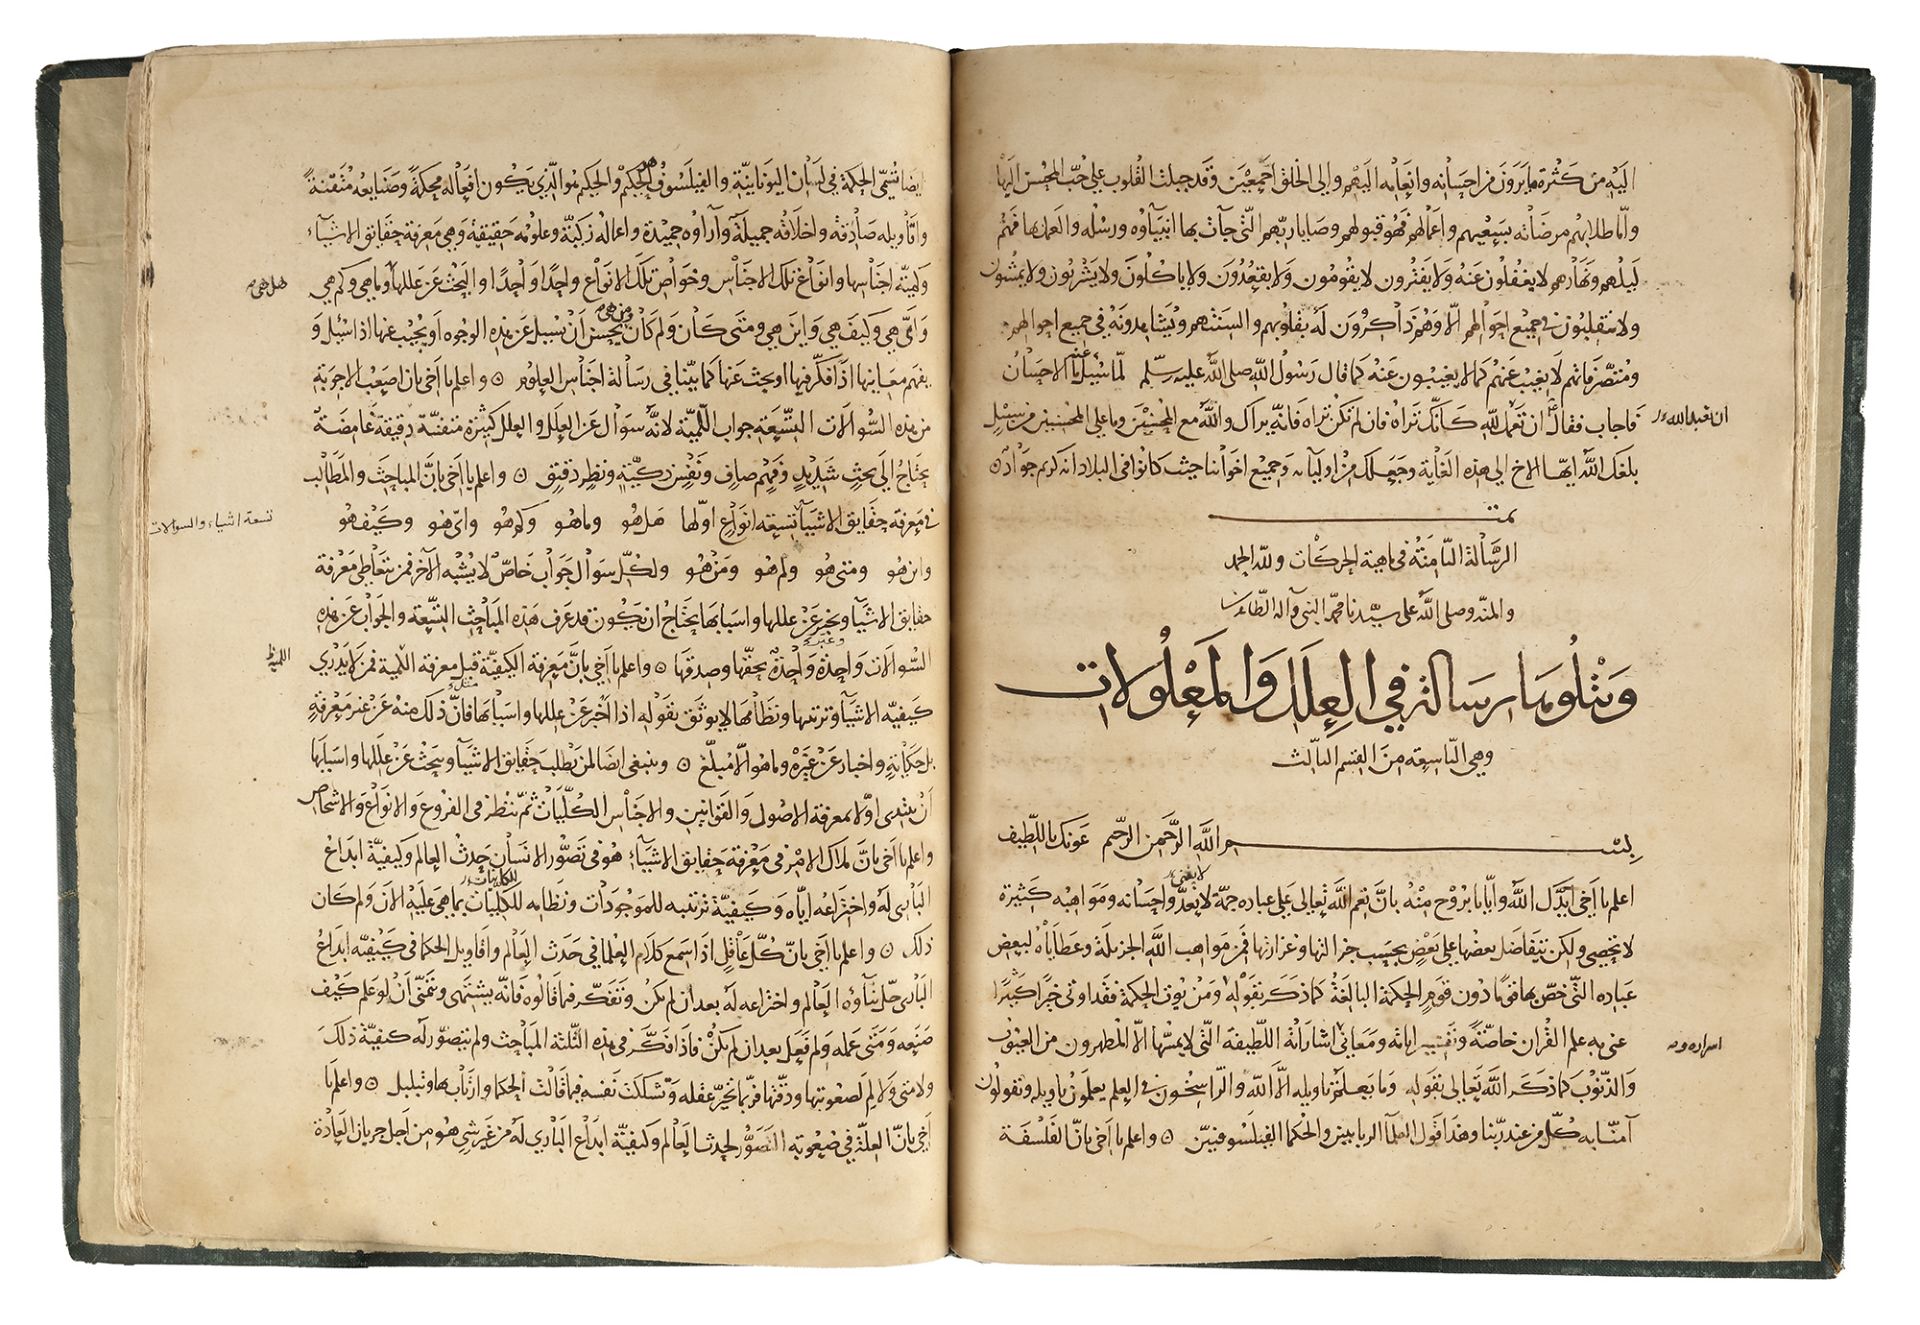 اليه من كثرة ما يرون من احسانه وانعامه اليهم والى الخلق اجمعين وقد جبلت القلوب على حب المحسن اليها
واما طلابهم مرضاته بسعيهم واعمالهم فهو قبولهم وصايا ربهم التى جآت بها انبيآوه ورسله والعمل بها فهم
ليلهم ونهارهم لا يغفلون عنه ولا يفترون لا يقومون ولا يقعدون ولا ياكلون ولا يشربون ولا يمشون
ولا ينقلبون فى جميع احوالهم الا وهم ذاكرون له بقلوبهم والسنتهم ويشاهدونه فى جميع احوالهم
ومتصرفاتهم لا يغيب عنهم كما لا يغيبون عنه كما قال رسول الله صلى الله عليه وسلم لما سئل عنه ما الاحسان
فاجاب فقال ان تعمل لله كانك تراه فان لم تكن تراه فانه يراك والله مع المحسنين وما على المحسنين من سبيل
ان تعبد الله
بلغك الله ايها الاخ الى هذه الغاية وجعلك من اوليائه وجميع اخواننا حيث كانوا فى البلاد انه كريم جواد
تمت
الرسالة الثامنة فى ماهية الحركات ولله الحمد
والمنه وصلى الله على سيدنا محمد النبى وآله الطاهرين
ويتلوها رسالة في العلل والمعلولات
وهي التاسعة من القسم الثالث
بسم الله الرحمن الرحيم عونك يا لطيف
اعلم يا اخى ايدك الله وايانا بروح منه بان نعم الله تعالى على عباده جمة لا تعد واحسانه ومواهبه كثيرة
لا تحصى ولكن يتفاضل بعضها على بعض بحسب جزالتها وغزارتها فمن مواهب الله الجزيلة وعطاياه لبعض
عباده التى خص بها قوما دون قوم الحكمة البالغة كما ذكر بقوله ومن يوت الحكمة فقد اوتى خيرا كثيرا
عنى به علم القران خاصة وتفسير اياته ومعانى اشاراته اللطيفة التى لا يمسها الا المطهرون من العيوب
اسراره و
والذنوب كما ذكر الله تعالى بقوله وما يعلم تاويله الا الله والراسخون فى العلم يعلمون تاويله ويقولون
آمنا به كل من عند ربنا وهذا قول العلمآ الربانيين والحكما الفيلسوفيين واعلم يا اخى بان الفلسفة
ايضا تسمى الحكمة فى لسان اليونانية والفيلسوف هو الحكيم والحكيم هو الذى يكون افعاله محكمة وصنايعه متقنة
واقاويله صادقة واخلاقه جميلة وآراوه حميدة واعماله زكية وعلومه حقيقية وهى معرفة حقايق الاشيآء
وكمية اجناسها وانواع تلك الاجناس وخواص تلك الانواع واحدا واحدا والبحث عن عللها وما هى وكم هى
هل هى
واى هى وكيف هى واين هى ومتى كان ولم كان ومن هى يحسن ان يسيل عن هذه الوجوه او يجيب عنها اذا سئل و
يفهم معانيها اذا فكر فيها او بحث عنها كما بينا فى رسالة اجناس العلوم واعلم يا اخى بان اصعب الاجوبة
من هذه السوالات التسعة جواب اللمية لانه سوال عن العلل والعلل كثيرة متفننة دقيقة غامضة
يحتاج الى بحث شديد وفهم صاف ونفس زكية ونظر دقيق واعلم يا اخى بان المباحث والمطالب
فى معرفة حقايق الاشيآ تسعة انواع اولها هل هو وما هو وكم هو واى هو وكيف هو
تسعة اشياء والسوالات
واين هو ومتى هو ولم هو ومن هو ولكل سوال جواب خاص لا يشبه الآخر فمن يتعاطى معرفة
حقايق الاشيآ ويخبر عن عللها واسبابها يحتاج ان يكون قد عرف هذه المباحث التسعة والجواب عن هذه
السوالات واحدة واحدة بحقها وصدقها واعلم يا اخى بان معرفة الكيفية قبل معرفة اللمية فمن لا يدرى
كيفية الاشيآ وترتيبها ونظامها لا يوثق بقوله اذا اخبر عن عللها واسبابها فان ذلك منه عن غير معرفة
بل حكاية واخبار عن غيره وما هو الا مبلغ وينبغى ايضا لمن يطلب حقايق الاشيآ ويبحث عن عللها واسبابها
ان يبتدى اولا بمعرفة الاصول والقوانين والاجناس الكليات ثم ينظر فى الفروع والانواع والاشخاص
واعلم يا اخى بان ملاك الامر فى معرفة حقايق الاشيآء هو فى تصور الانسان حدث العالم وكيفية ابداع
البارى له واختراعه اياه وكيفية ترتيبه للموجودات ونظامه للكليات بما هى عليه الان ولم كان
ذلك واعلم يا اخى بان كل عاقل اذا سمع كلام العلما فى حدث العالم واقاويل الحكما فى كيفية ابداع
البارى جل ثنآوه العالم واختراعه له بعد ان لم يكن وتفكر فيما قالوه فانه يشتهى ويتمنى ان لو علم كيف
صنعه ومتى عمله ولم فعل بعد ان لم يكن فاذا فكر فى هذه الثلثة المباحث ولم يتصور له كيفية ذلك
ولا متى ولا لم لصعوبتها ودقتها فربما تحير عقله وتشككت نفسه فيما قالت الحكما وارتاب بها وتبلبل واعلم يا
اخى بان العلة فى صعوبة التصور لحدث العالم وكيفية ابداع البارى له من غير شى هو من اجل جريان العادة